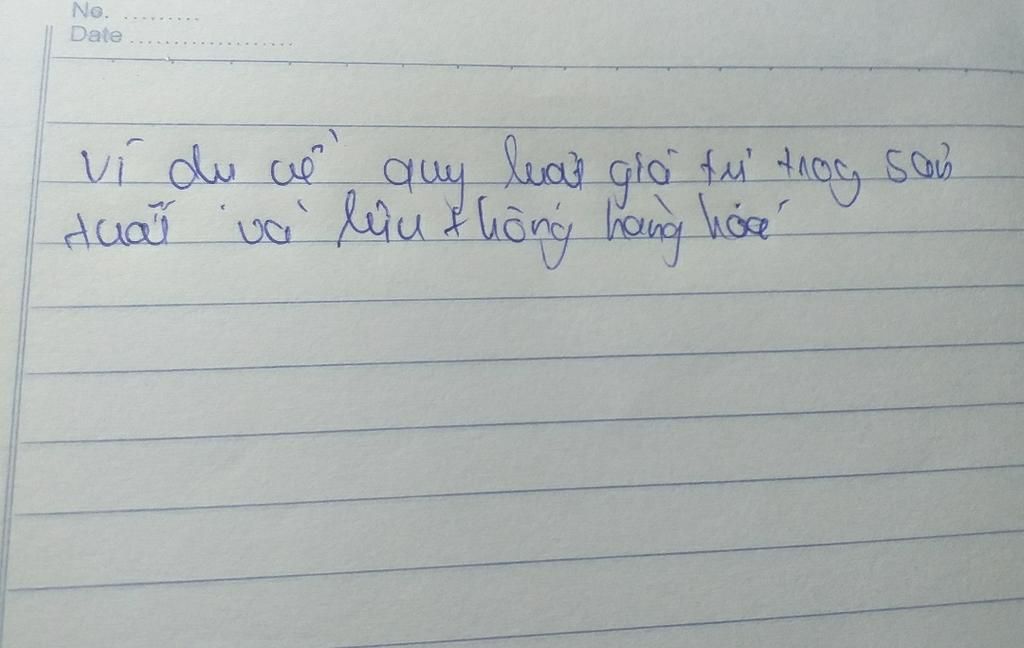 No. .........
Date ..................
Ví dụ về quy luật giá trị trog sản
xuất và lưu thông hàng hóa